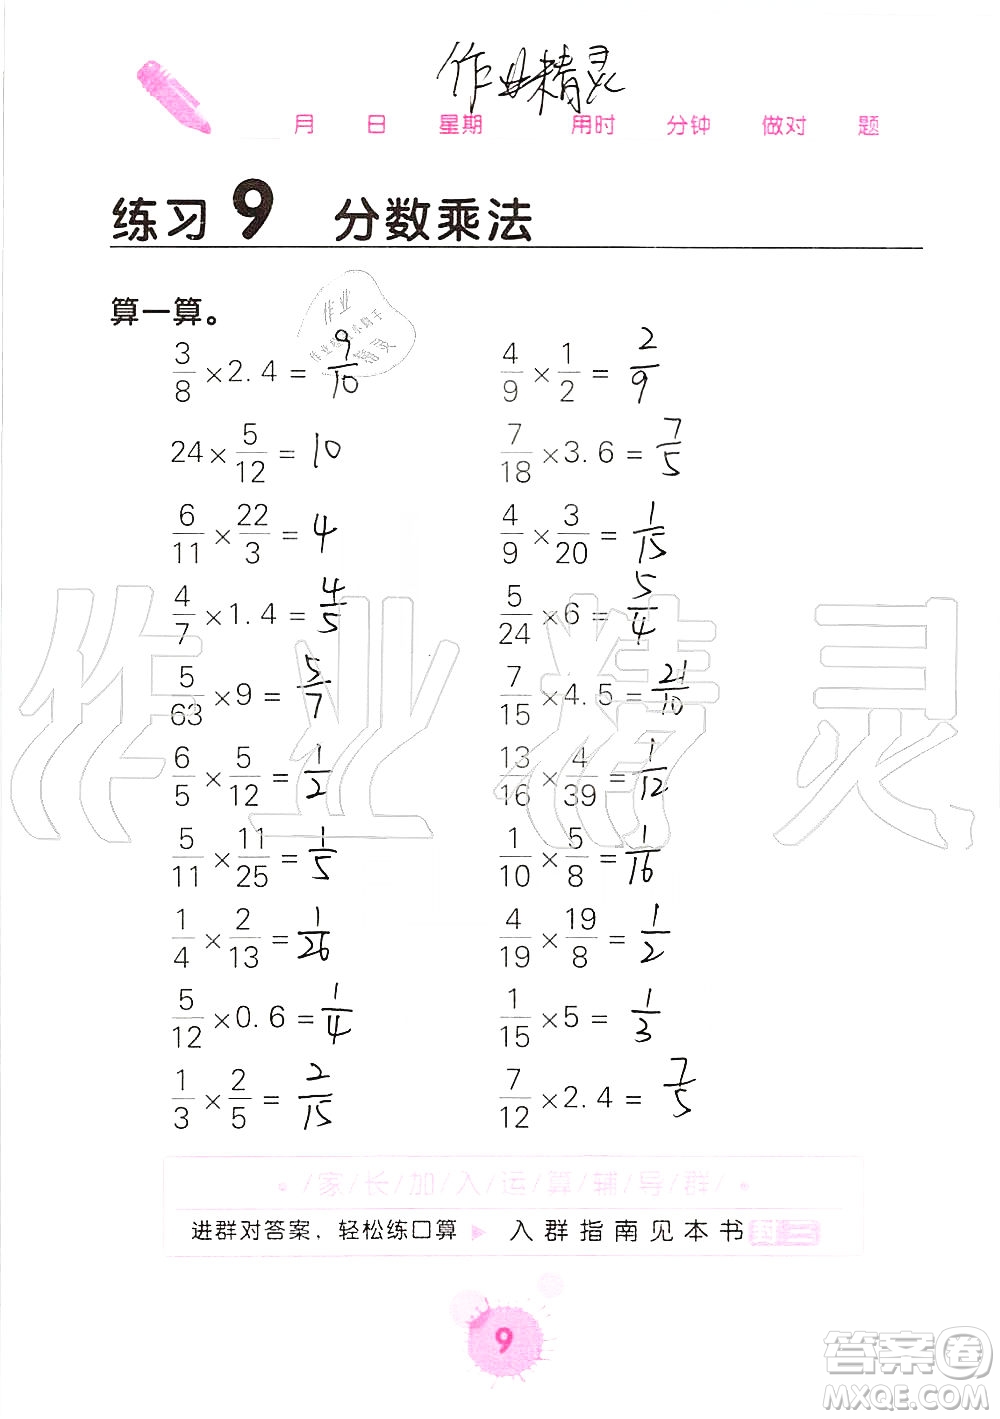 作业精灵
月 日 星期 用时 分钟 做对 题
练习9 分数乘法
算一算。
作业
小助手
精灵
3/8 × 2.4 = 9/10 4/9 × 1/2 = 2/9
24 × 5/12 = 10 7/18 × 3.6 = 7/5
6/11 × 22/3 = 4 4/9 × 3/20 = 1/15
4/7 × 1.4 = 4/5 5/24 × 6 = 5/4
5/63 × 9 = 5/7 7/15 × 4.5 = 21/10
6/5 × 5/12 = 1/2 13/16 × 4/39 = 1/12
5/11 × 11/25 = 1/5 1/10 × 5/8 = 1/16
1/4 × 2/13 = 1/26 4/19 × 19/8 = 1/2
5/12 × 0.6 = 1/4 1/15 × 5 = 1/3
1/3 × 2/5 = 2/15 7/12 × 2.4 = 7/5
作业精灵
·/家/长/加/入/运/算/辅/导/群/·
进群对答案，轻松练口算 ▶ 入群指南见本书封三
9
答案圈
MXQE.COM